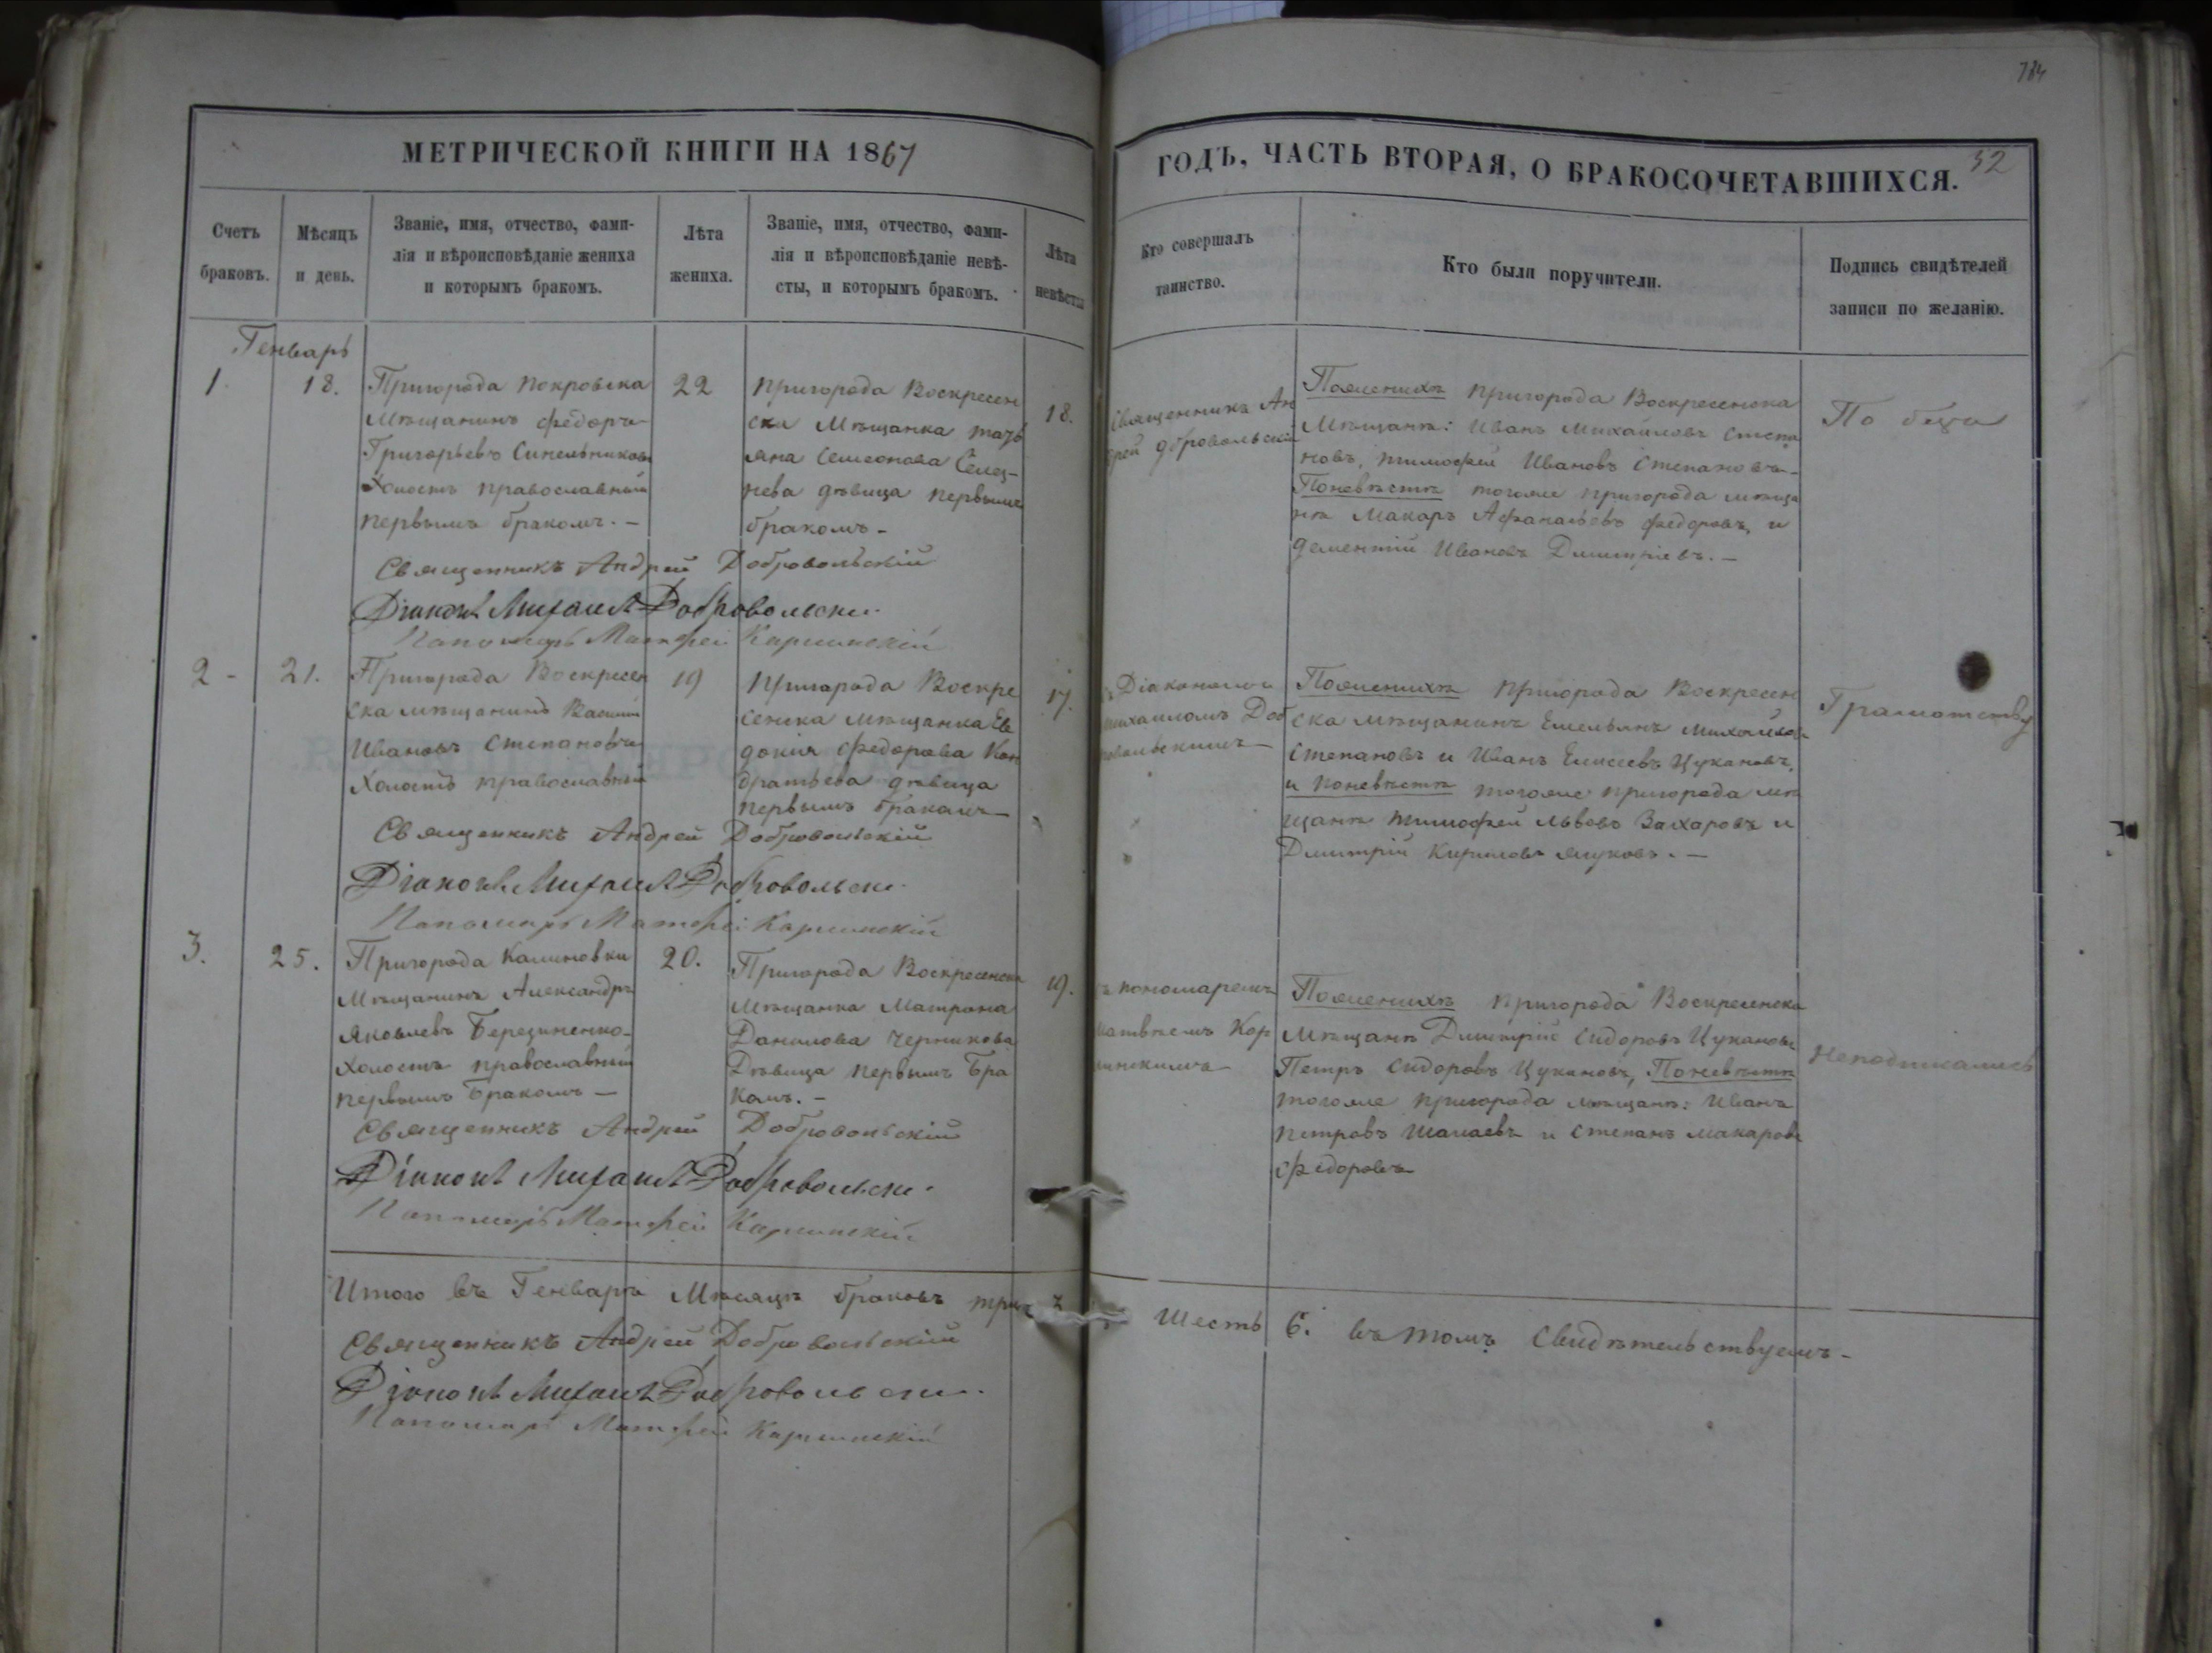 784
МЕТРИЧЕСКОЙ КНИГИ НА 1867
ГОДЪ, ЧАСТЬ ВТОРАЯ, О БРАКОСОЧЕТАВШИХСЯ.
52
Счетъ
браковъ.
Мѣсяцъ
и день.
Званіе, имя, отчество, фами-
лія и вѣроисповѣданіе жениха
и которымъ бракомъ.
Лѣта
жениха.
Званіе, имя, отчество, фами-
лія и вѣроисповѣданіе невѣ-
сты, и которымъ бракомъ.
Лѣта
невѣсты
Кто совершалъ
таинство.
Кто были поручители.
Подпись свидѣтелей
записи по желанію.
Генварь
1.
18.
Пригорода Покровска
Мѣщанинъ Федоръ
Григорьевъ Синельниковъ
Холостъ православный
первымъ бракомъ. -
22
Пригорода Воскресен
ска Мѣщанка Тать
яна Семеонова Селез-
нева дѣвица первымъ
бракомъ -
18.
Священникъ Ан
дрей Добровольскій
Поженихѣ Пригорода Воскресенска
Мѣщанѣ: Иванъ Михайловъ Степа
новъ, Тимофей Ивановъ Степановъ -
Поневѣстѣ тогоже пригорода мѣща
нѣ Макаръ Афанасьевъ Федоровъ, и
Дементій Ивановъ Дмитріевъ. -
Священникъ Андрей Добровольскій
Діаконъ Михаилъ Добровольскій
Пономарь Матфей
2 -
21.
Пригорода Воскресен
ска мѣщанинъ Василій
Ивановъ Степановъ
Холостъ православный
19
Пригорода Воскре
сенска мѣщанка Ев
докія Федорова Кон
дратьева дѣвица
первымъ бракомъ -
17.
Діакономъ
Михаиломъ Доб
ровольскимъ -
Поженихѣ Пригорода Воскресен
ска мѣщанинъ Емельянъ Михайловъ
Степановъ и Иванъ Елисеевъ Цукановъ,
и поневѣстѣ тогоже пригорода мѣ
щанѣ Тимофей Львовъ Захаровъ и
Дмитрій Кириловъ Жуковъ. -
Грамотству
Священникъ Андрей Добровольскій
Діаконъ Михаилъ Добровольскій
Пономарь Матфей
3.
25.
Пригорода Калиновки
Мѣщанинъ Александръ
Яковлевъ Березиненко
Холостъ православный
первымъ Бракомъ -
20.
Пригорода Воскресенска
Мѣщанка Матрона
Данилова Черникова
Дѣвица первымъ Бра
комъ. -
19.
пономаремъ
Матвѣемъ
Поженихѣ Пригорода Воскресенска
Мѣщанѣ Дмитрій Сидоровъ Цукановъ
Петръ Сидоровъ Цукановъ, Поневѣстѣ
тогоже пригорода мѣщанѣ: Иванъ
Петровъ Шалаевъ и Степанъ Макаровъ
Федоровъ
Священникъ Андрей Добровольскій
Діаконъ Михаилъ Добровольскій
Пономарь Матфей
Итого въ Генварѣ Мѣсяцѣ браковъ три 3
Шесть 6. въ томъ Свидѣтельствуемъ -
Священникъ Андрей Добровольскій
Діаконъ Михаилъ Добровольскій
Пономарь Матфей